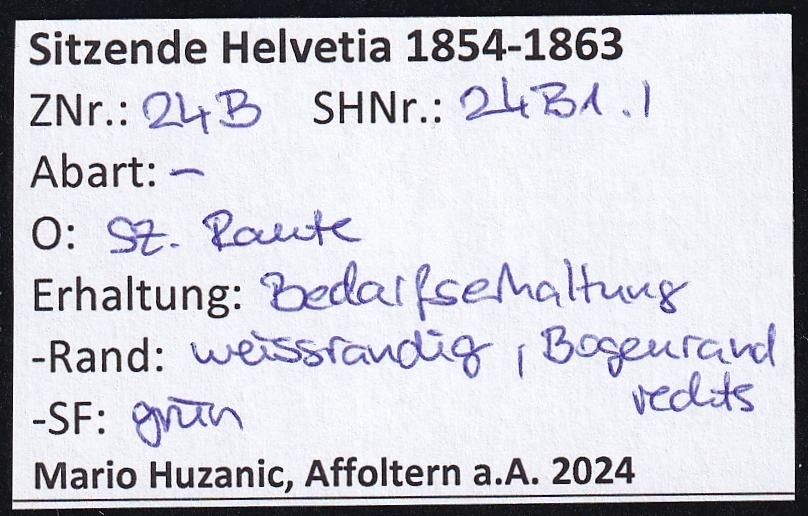 Sitzende Helvetia 1854-1863
ZNr.: 24B SHNr.: 24B1.I
Abart: –
O: sz. Raute
Erhaltung: Bedarfserhaltung
-Rand: weissrandig, Bogenrand
rechts
-SF: grün
Mario Huzanic, Affoltern a.A. 2024